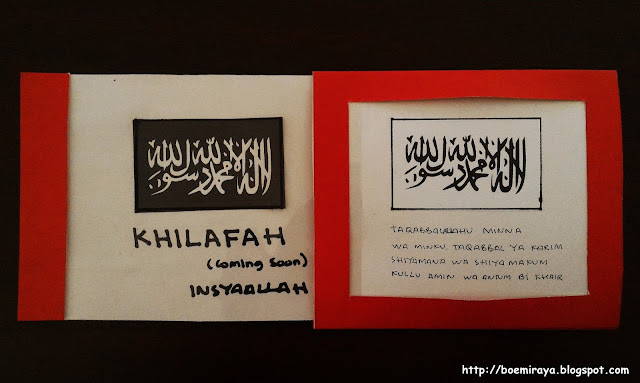 لا إله إلا الله محمد رسول الله
KHILAFAH
(coming soon)
INSYAALLAH
لا إله إلا الله محمد رسول الله
TAQABBALALLAHU MINNA
WA MINKU TAQABBAL YA KARIM
SHIYAMANA WA SHIYAMAKUM
KULLU AMIN WA ANTUM BI KHAIR
http://boemiraya.blogspot.com